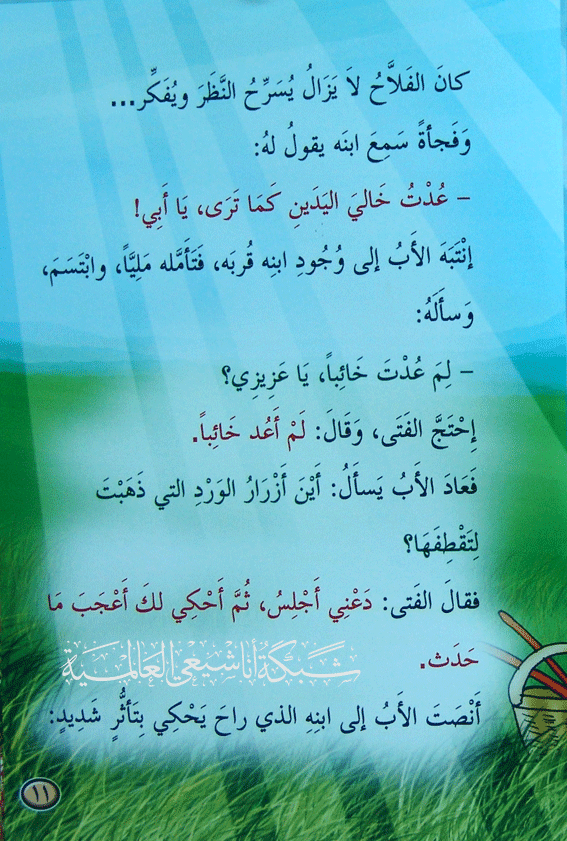 كانَ الفَلاَّحُ لاَ يَزَالُ يُسَرِّحُ النَّظَرَ ويُفَكِّر...
وَفَجأةً سَمِعَ ابنَه يقولُ لهُ:
– عُدْتُ خَاليَ اليَدَينِ كَمَا تَرَى، يَا أَبِي!
إنْتَبَهَ الأَبُ إلى وُجُودِ ابنِه قُربَه، فَتَأَمَّله مَلِيَّاً، وابْتَسَمَ،
وَسأَلَهُ:
– لِمَ عُدْتَ خَائِباً، يَا عَزِيزِي؟
إِحْتَجَّ الفَتَى، وَقَالَ: لَمْ أَعُد خَائِباً.
فَعَادَ الأَبُ يَسأَلُ: أَيْنَ أَزْرَارُ الوَرْدِ التي ذَهَبْتَ
لِتَقْطِفَهَا؟
فقالَ الفَتى: دَعْنِي أَجْلِسُ، ثُمَّ أَحْكِي لكَ أَعْجَبَ مَا
حَدَث.
شَبَكَةُ أنا شيعي العَالَمِيَّة
أَنْصَتَ الأَبُ إلى ابنِهِ الذي راحَ يَحْكِي بِتَأثُّرٍ شَدِيدٍ:
١١